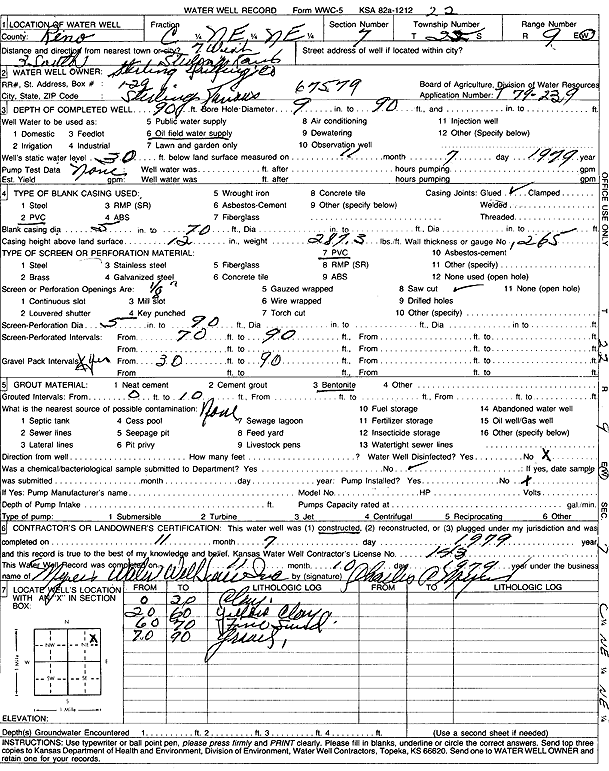 WATER WELL RECORD Form WWC-5 KSA 82a-1212 22
1 LOCATION OF WATER WELL Fraction Section Number Township Number Range Number
County: Reno C ¼ NE ¼ NE ¼ 7 T 22 S R 9 E/W
Distance and direction from nearest town or city? 7 West Street address of well if located within city?
3 South Sterling Kans
2 WATER WELL OWNER: Sterling Drilling Co
RR#, St. Address, Box # : 129 67579 Board of Agriculture, Division of Water Resources
City, State, ZIP Code : Sterling Kansas Application Number: T 79-239
3 DEPTH OF COMPLETED WELL 90 ft. Bore Hole Diameter 9 in. to 90 ft., and in. to ft.
Well Water to be used as: 5 Public water supply 8 Air conditioning 11 Injection well
1 Domestic 3 Feedlot 6 Oil field water supply 9 Dewatering 12 Other (Specify below)
2 Irrigation 4 Industrial 7 Lawn and garden only 10 Observation well
Well's static water level 30 ft. below land surface measured on 11 month 7 day 1979 year
Pump Test Data None Well water was ft. after hours pumping gpm
Est. Yield gpm: Well water was ft. after hours pumping gpm
4 TYPE OF BLANK CASING USED: 5 Wrought iron 8 Concrete tile Casing Joints: Glued ✓ Clamped
1 Steel 3 RMP (SR) 6 Asbestos-Cement 9 Other (specify below) Welded
2 PVC 4 ABS 7 Fiberglass Threaded
Blank casing dia 5 in. to 70 ft., Dia in. to ft., Dia in. to ft.
Casing height above land surface 12 in., weight 287.3 lbs./ft. Wall thickness or gauge No. .265
TYPE OF SCREEN OR PERFORATION MATERIAL: 7 PVC 10 Asbestos-cement
1 Steel 3 Stainless steel 5 Fiberglass 8 RMP (SR) 11 Other (specify)
2 Brass 4 Galvanized steel 6 Concrete tile 9 ABS 12 None used (open hole)
Screen or Perforation Openings Are: 1/8" 5 Gauzed wrapped 8 Saw cut ✓ 11 None (open hole)
1 Continuous slot 3 Mill slot 6 Wire wrapped 9 Drilled holes
2 Louvered shutter 4 Key punched 7 Torch cut 10 Other (specify)
Screen-Perforation Dia 5 in. to 90 ft., Dia in. to ft., Dia in to ft.
Screen-Perforated Intervals: From 70 ft. to 90 ft., From ft. to ft.
From ft. to ft., From ft. to ft.
Gravel Pack Intervals: Yes From 30 ft. to 90 ft., From ft. to ft.
From ft. to ft., From ft. to ft.
5 GROUT MATERIAL: 1 Neat cement 2 Cement grout 3 Bentonite 4 Other
Grouted Intervals: From 0 ft. to 10 ft., From ft. to ft., From ft. to ft.
What is the nearest source of possible contamination: None 10 Fuel storage 14 Abandoned water well
1 Septic tank 4 Cess pool 7 Sewage lagoon 11 Fertilizer storage 15 Oil well/Gas well
2 Sewer lines 5 Seepage pit 8 Feed yard 12 Insecticide storage 16 Other (specify below)
3 Lateral lines 6 Pit privy 9 Livestock pens 13 Watertight sewer lines
Direction from well How many feet ? Water Well Disinfected? Yes No X
Was a chemical/bacteriological sample submitted to Department? Yes No ✓ If yes, date sample
was submitted month day year: Pump Installed? Yes No X
If Yes: Pump Manufacturer's name Model No. HP Volts
Depth of Pump Intake ft. Pumps Capacity rated at gal./min.
Type of pump: 1 Submersible 2 Turbine 3 Jet 4 Centrifugal 5 Reciprocating 6 Other
6 CONTRACTOR'S OR LANDOWNER'S CERTIFICATION: This water well was (1) constructed, (2) reconstructed, or (3) plugged under my jurisdiction and was
completed on 11 month 7 day 1979 year
and this record is true to the best of my knowledge and belief. Kansas Water Well Contractor's License No. 143
This Water Well Record was completed on 11 month 10 day 1979 year under the business
name of Myers Water Well Service by (signature) Charles Myers
7 LOCATE WELL'S LOCATION WITH AN "X" IN SECTION BOX: FROM TO LITHOLOGIC LOG FROM TO LITHOLOGIC LOG
0 20 Clay
20 60 Yellow Clay
60 70 Fine Sand
70 90 Gravel
N
NW NE X
W E
SW SE
S
1 Mile
ELEVATION:
Depth(s) Groundwater Encountered 1 ft. 2 ft. 3 ft. 4 ft. (Use a second sheet if needed)
INSTRUCTIONS: Use typewriter or ball point pen, please press firmly and PRINT clearly. Please fill in blanks, underline or circle the correct answers. Send top three
copies to Kansas Department of Health and Environment, Division of Environment, Water Well Contractors, Topeka, KS 66620. Send one to WATER WELL OWNER and
retain one for your records.
OFFICE USE ONLY
T 22 R 9 E/W SEC 7 C ¼ NE ¼ NE ¼